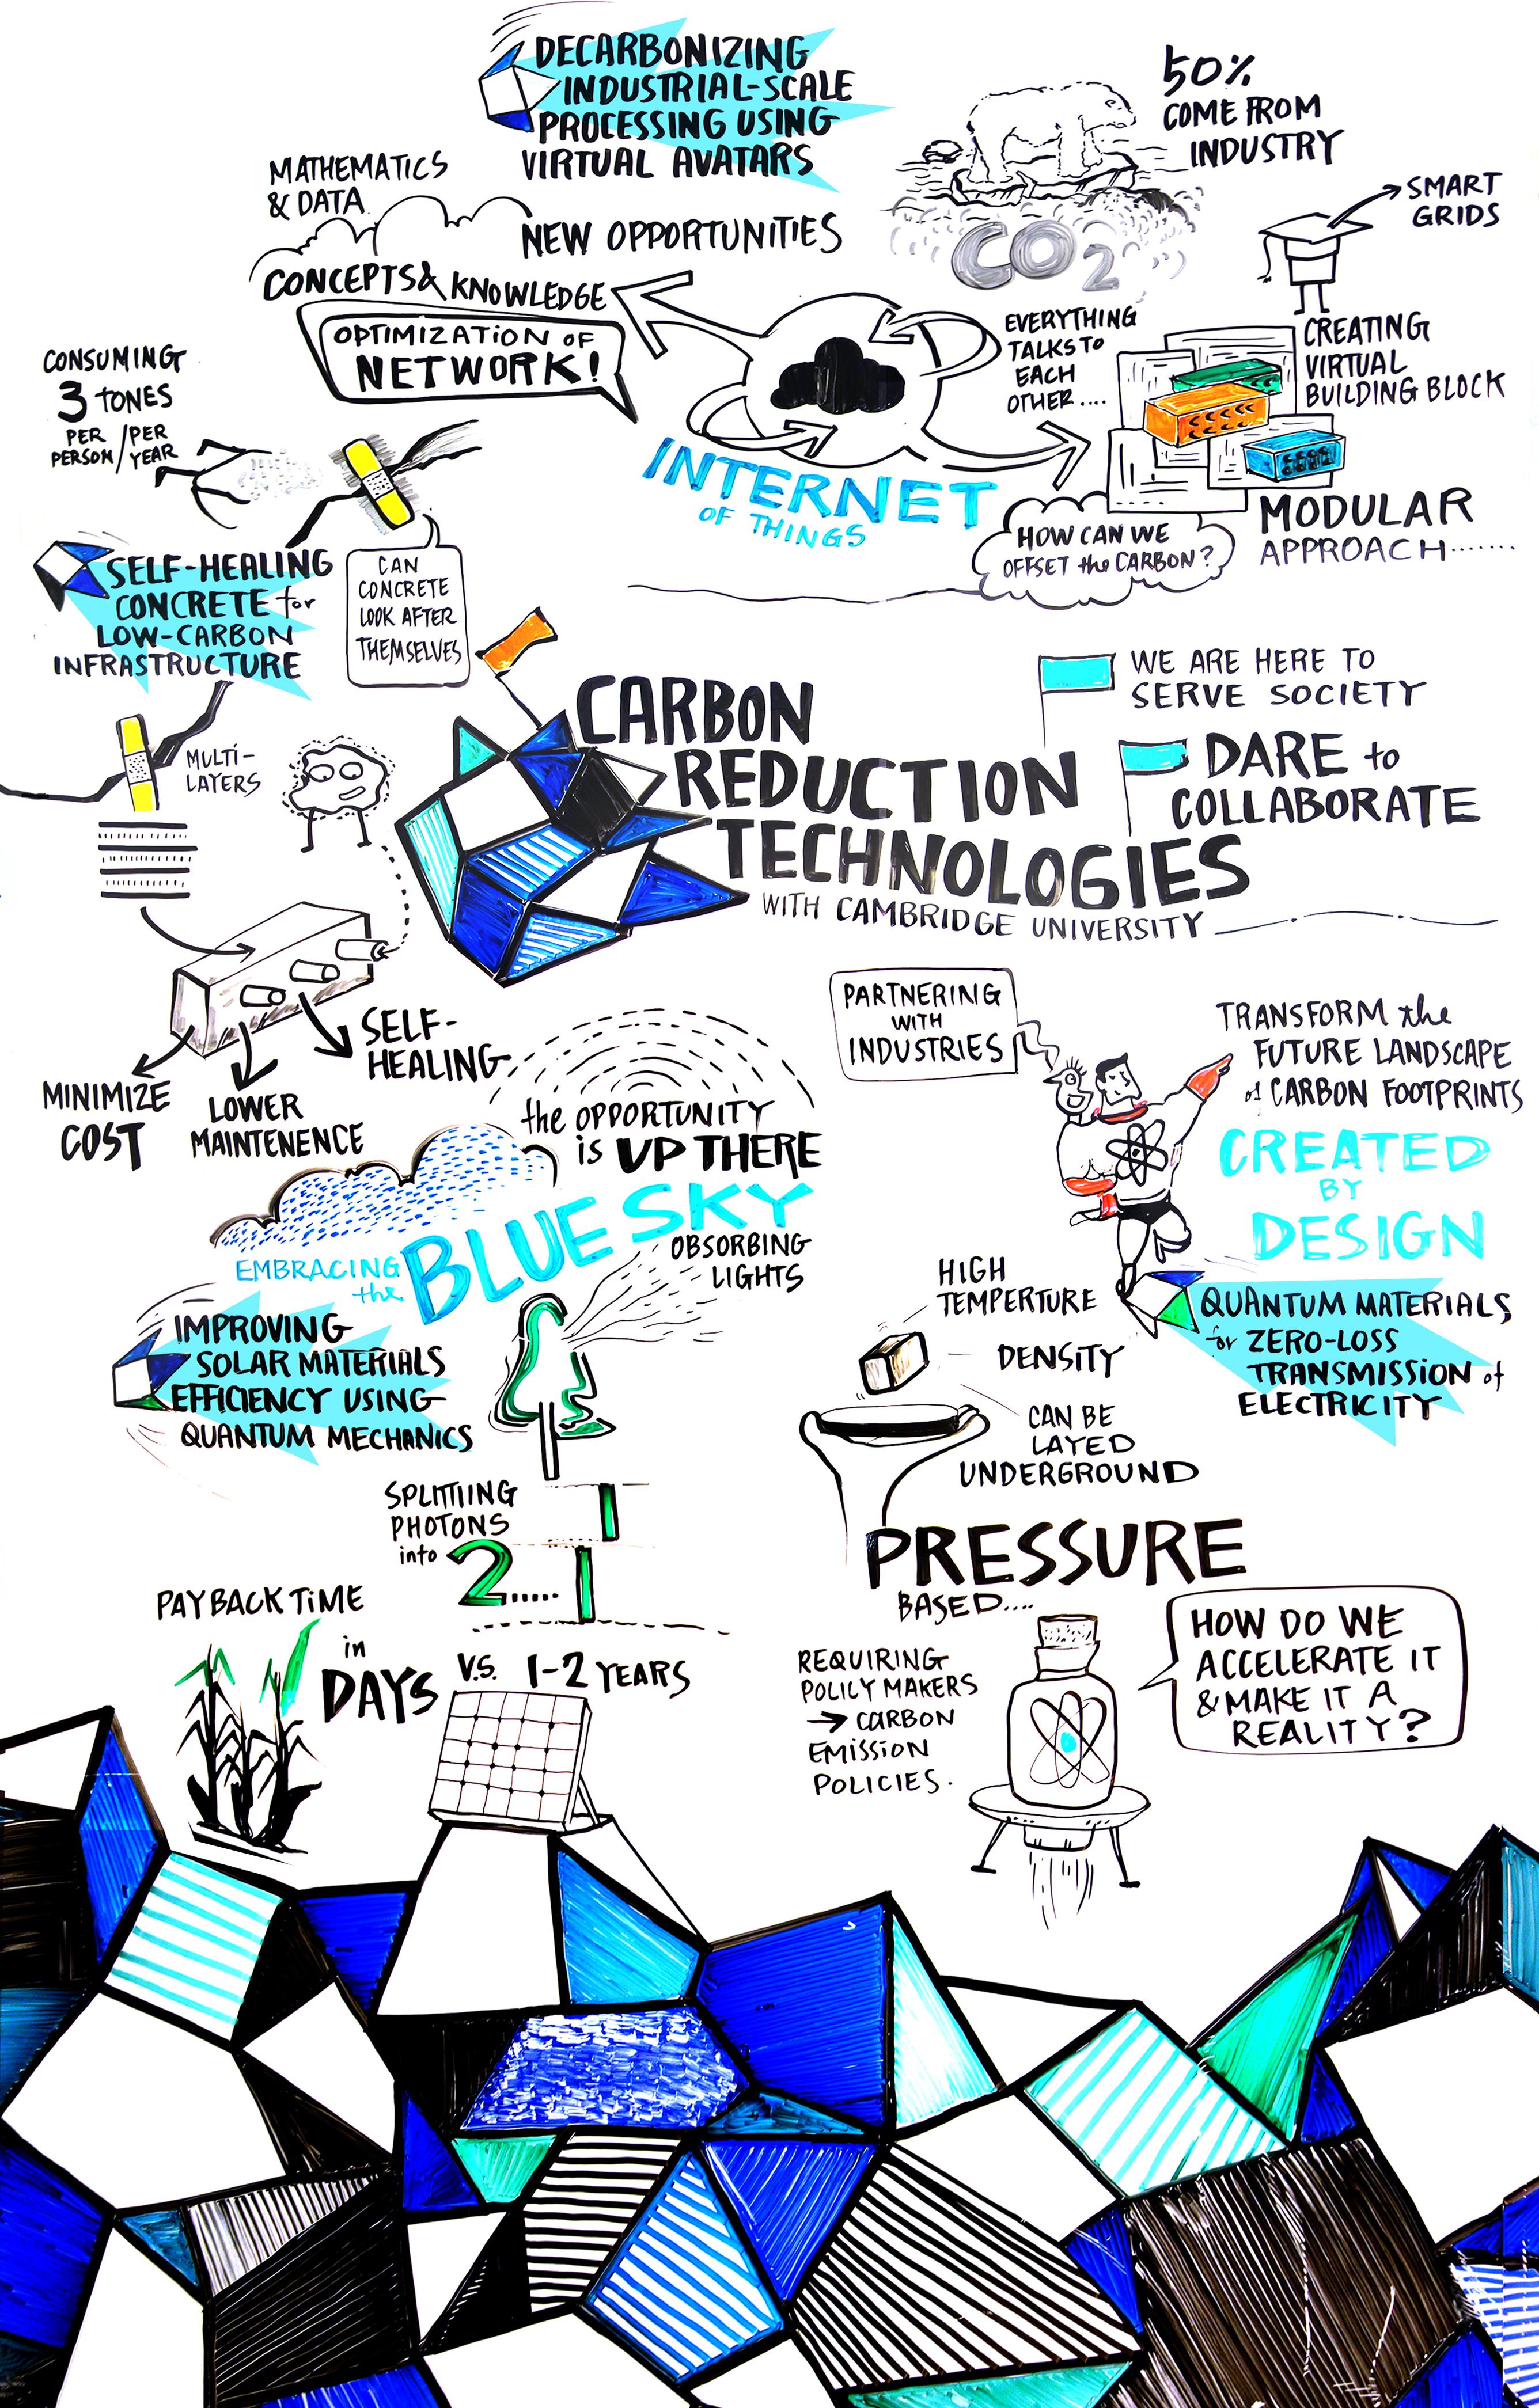 DECARBONIZING
INDUSTRIAL-SCALE
PROCESSING USING
VIRTUAL AVATARS
50%
COME FROM
INDUSTRY
CO2
MATHEMATICS
& DATA
NEW OPPORTUNITIES
CONCEPTS & KNOWLEDGE
OPTIMIZATION OF
NETWORK!
SMART
GRIDS
EVERYTHING
TALKS TO
EACH
OTHER....
CREATING
VIRTUAL
BUILDING BLOCK
INTERNET
OF THINGS
HOW CAN WE
OFFSET the CARBON?
MODULAR
APPROACH.......
CONSUMING
3 TONES
PER PERSON/PER YEAR
SELF-HEALING
CONCRETE for
LOW-CARBON
INFRASTRUCTURE
CAN
CONCRETE
LOOK AFTER
THEMSELVES
MULTI-
LAYERS
SELF-
HEALING
MINIMIZE
COST
LOWER
MAINTENENCE
CARBON
REDUCTION
TECHNOLOGIES
WITH CAMBRIDGE UNIVERSITY
WE ARE HERE TO
SERVE SOCIETY
DARE to
COLLABORATE
PARTNERING
WITH
INDUSTRIES
TRANSFORM the
FUTURE LANDSCAPE
of CARBON FOOTPRINTS
CREATED
BY
DESIGN
QUANTUM MATERIALS
for ZERO-LOSS
TRANSMISSION of
ELECTRICITY
the OPPORTUNITY
is UP THERE
EMBRACING
the
BLUE SKY
OBSORBING
LIGHTS
IMPROVING
SOLAR MATERIALS
EFFICIENCY USING
QUANTUM MECHANICS
SPLITTIING
PHOTONS
into 2.....
PAYBACK TIME
in
DAYS V.S. 1-2 YEARS
HIGH
TEMPERTURE
DENSITY
CAN BE
LAYED
UNDERGROUND
PRESSURE
BASED....
REQUIRING
POLICY MAKERS
→ CARBON
EMISSION
POLICIES.
HOW DO WE
ACCELERATE IT
& MAKE IT A
REALITY?